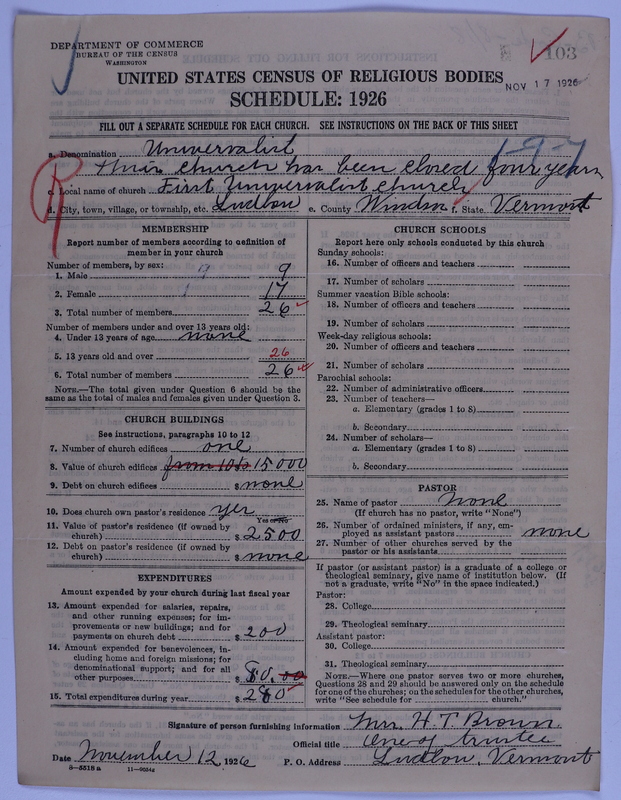 DEPARTMENT OF COMMERCE
BUREAU OF THE CENSUS
WASHINGTON
103
UNITED STATES CENSUS OF RELIGIOUS BODIES
NOV 17 1926
SCHEDULE: 1926
FILL OUT A SEPARATE SCHEDULE FOR EACH CHURCH. SEE INSTRUCTIONS ON THE BACK OF THIS SHEET
a. Denomination Universalist
1-9-7
This church has been closed four years
c. Local name of church First Universalist church
d. City, town, village, or township, etc. Ludlow e. County Windsor f. State Vermont
MEMBERSHIP
Report number of members according to definition of
member in your church
Number of members, by sex:
1. Male 9 9
2. Female 1 17
3. Total number of members 26
Number of members under and over 13 years old:
4. Under 13 years of age none
5. 13 years old and over 26
6. Total number of members 26
NOTE.—The total given under Question 6 should be
same as the total of males and females given under Question 3.
CHURCH BUILDINGS
See instructions, paragraphs 10 to 12
7. Number of church edifices one
8. Value of church edifices from 10 to 15000
9. Debt on church edifices $ none
10. Does church own pastor's residence yes
Yes or No
11. Value of pastor's residence (if owned by
church) $ 2500
12. Debt on pastor's residence (if owned by
church) $ none
EXPENDITURES
Amount expended by your church during last fiscal year
13. Amount expended for salaries, repairs,
and other running expenses; for im-
provements or new buildings; and for
payments on church debt $ 200
14. Amount expended for benevolences, in-
cluding home and foreign missions; for
denominational support; and for all
other purposes $ 80.00
15. Total expenditures during year $ 280
CHURCH SCHOOLS
Report here only schools conducted by this church
Sunday schools:
16. Number of officers and teachers
17. Number of scholars
Summer vacation Bible schools:
18. Number of officers and teachers
19. Number of scholars
Week-day religious schools:
20. Number of officers and teachers
21. Number of scholars
Parochial schools:
22. Number of administrative officers
23. Number of teachers—
a. Elementary (grades 1 to 8)
b. Secondary
24. Number of scholars—
a. Elementary (grades 1 to 8)
b. Secondary
PASTOR
25. Name of pastor None
(If church has no pastor, write "None")
26. Number of ordained ministers, if any, em-
ployed as assistant pastors none
27. Number of other churches served by the
pastor or his assistants
If pastor (or assistant pastor) is a graduate of a college or
theological seminary, give name of institution below. (If
not a graduate, write "No" in the space indicated.)
Pastor:
28. College
29. Theological seminary
Assistant pastor:
30. College
31. Theological seminary
NOTE.—Where one pastor serves two or more churches,
Questions 28 and 29 should be answered only on the schedule
for one of the churches; on the schedules for the other churches,
write "See schedule for church."
Signature of person furnishing information Mrs. H. T. Brown
Official title One of trustee
Date November 12, 1926 P. O. Address Ludlow, Vermont